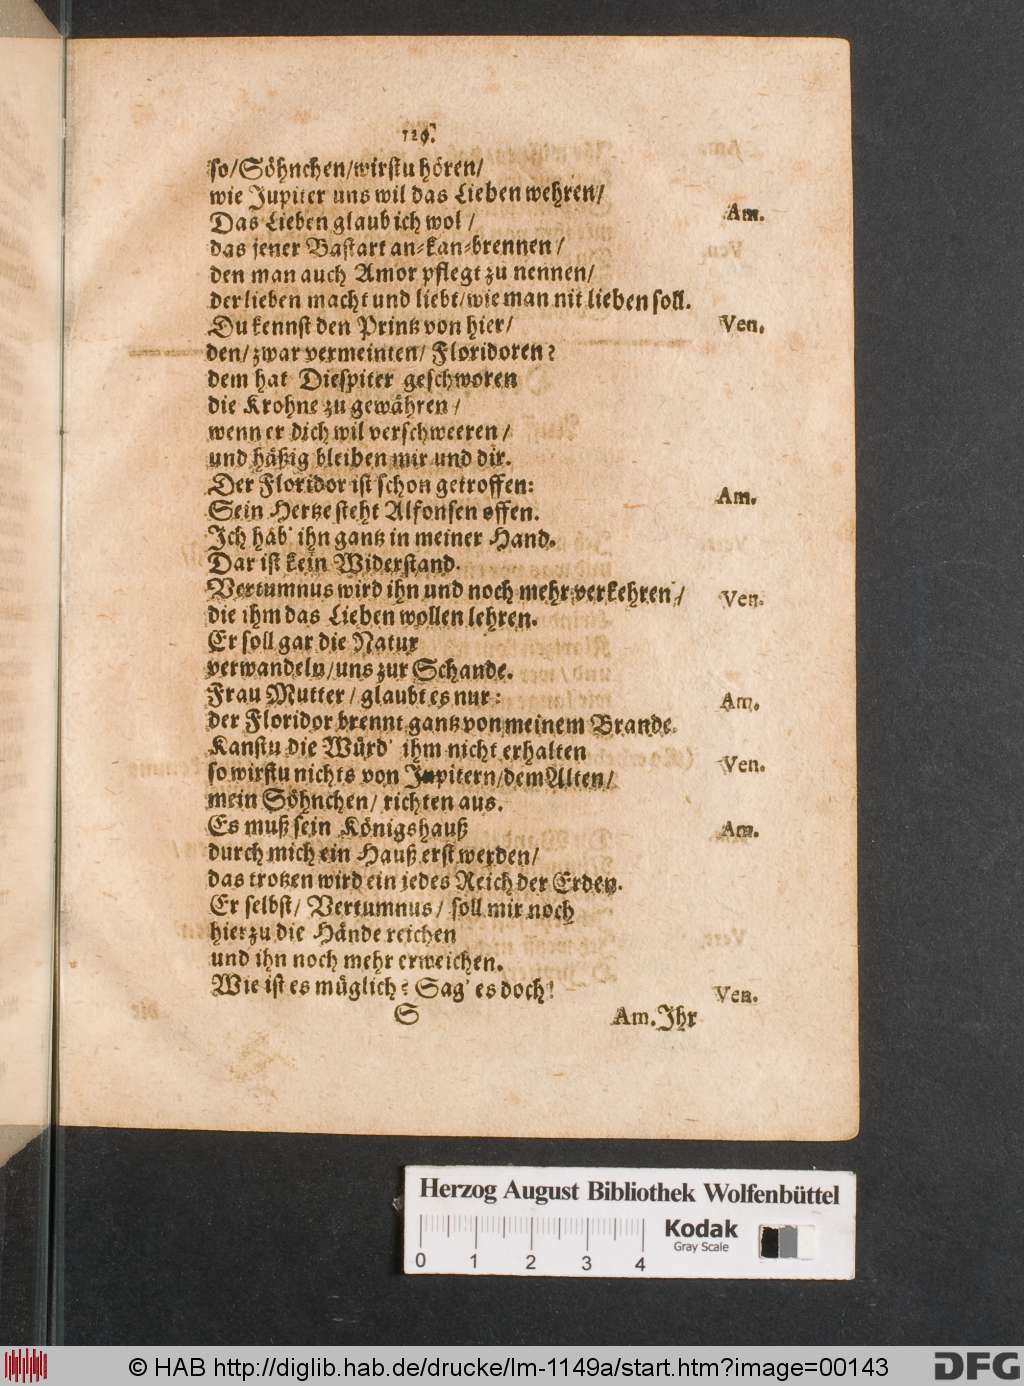 129.
so/Söhnchen/wirstu hören/
wie Jupiter uns wil das Lieben wehren/
Das Lieben glaub ich wol / Am.
das jener Bastart an-kan-brennen /
den man auch Amor pflegt zu nennen/
der lieben macht und liebt/wie man nit lieben soll.
Du kennst den Printz von hier/ Ven.
den/ zwar vermeinten/ Floridoren?
dem hat Diespiter geschworen
die Krohne zu gewähren /
wenn er dich wil verschweeren /
und häßig bleiben mir und dir.
Der Floridor ist schon getroffen: Am.
Sein Hertze steht Alfonsen offen.
Ich hab' ihn gantz in meiner Hand.
Dar ist kein Widerstand.
Vertumnus wird ihn und noch mehr verkehren / Ven.
die ihm das Lieben wollen lehren.
Er soll gar die Natur
verwandeln/uns zur Schande.
Frau Mutter / glaubt es nur: Am.
der Floridor brennt gantz von meinem Brande.
Kanstu die Würd' ihm nicht erhalten
so wirstu nichts von Jupitern/dem Alten/ Ven.
mein Söhnchen/ richten aus.
Es muß sein Königshauß Am.
durch mich ein Hauß erst werden/
das trotzen wird ein jedes Reich der Erden.
Er selbst/ Vertumnus/ soll mir noch
hierzu die Hände reichen
und ihn noch mehr erweichen.
Wie ist es müglich? Sag' es doch! Ven.
S Am. Ihr
Herzog August Bibliothek Wolfenbüttel
0 1 2 3 4
Kodak
Gray Scale
© HAB http://diglib.hab.de/drucke/lm-1149a/start.htm?image=00143
DFG